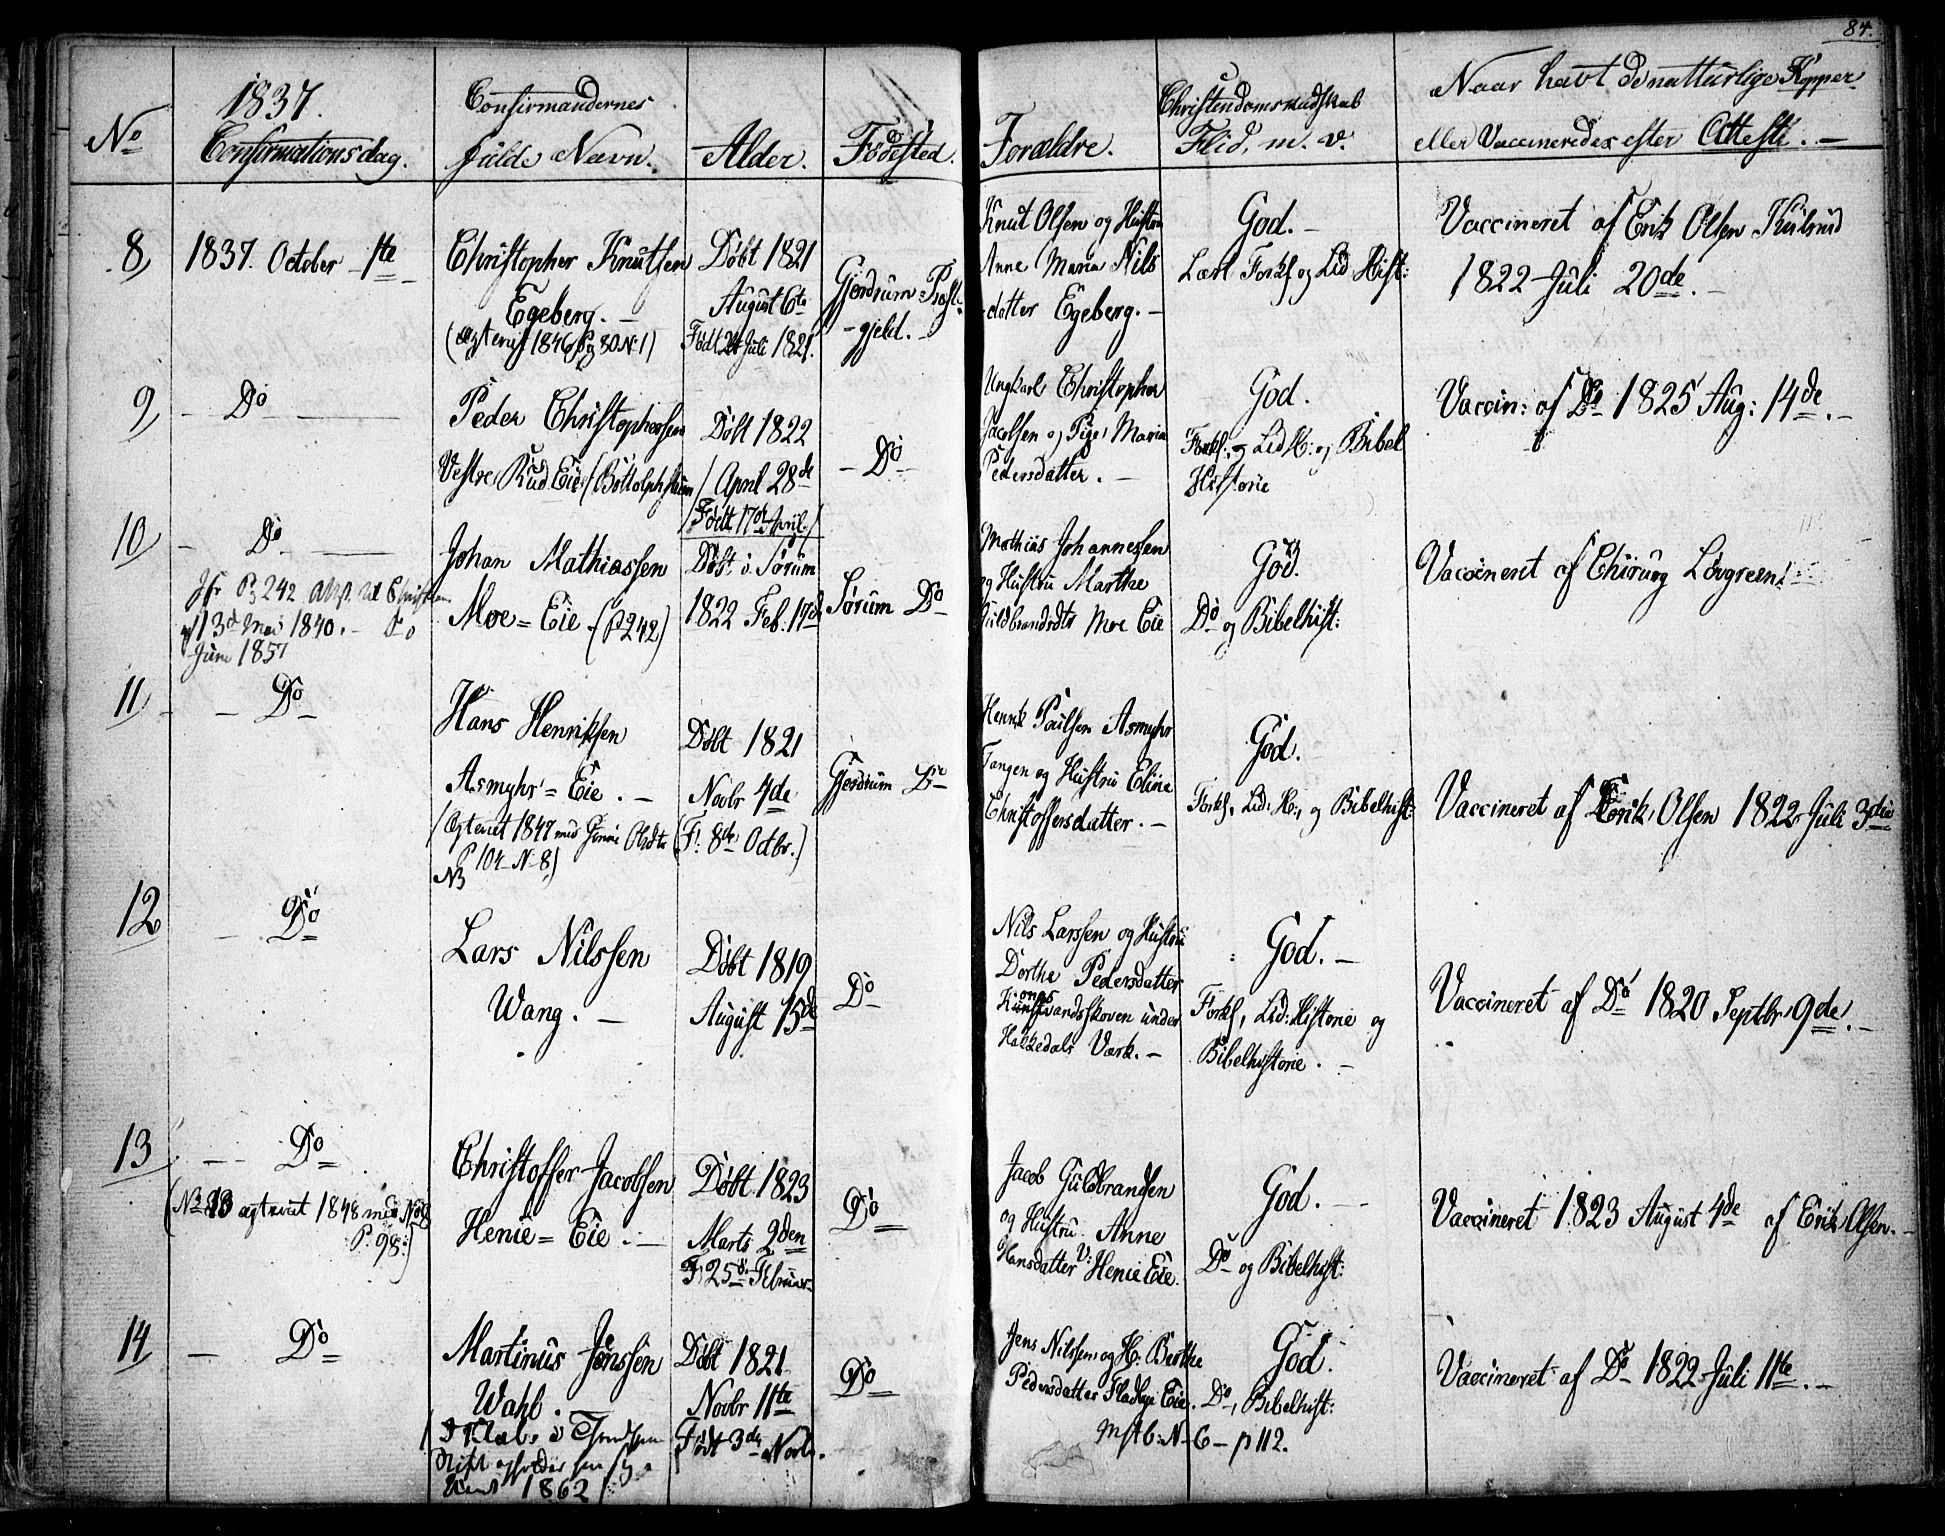 84.
1837.
No
Confirmationsdag.
Confirmandernes
fulde Navn.
Alder.
Födested.
Forældre.
Christendomskundskab
Flid, m. v.
Naar havt de natturlige Kopper
eller Vaccineredes efter Attesti. -
8,
1837. October 1te
Christopher Knutsen
Egeberg. -
(ægteviet 1846 Pg 80 N. 1)
Døbt 1821
August 6te
Født 24 Juli 1821.
Gjerdrum Præst-
-gjeld. -
Knut Olsen og Hustru
Anne Maria Nils
datter Egeberg. -
God. -
Lært Forkl. og Lid Hist:
Vaccineret af Erik Olsen Kulsrud
1822 Juli 20de. -
9,
- Do -
Peder Christophersen
Vestre Rud Eie (Bottolphstuen)
Døbt 1822
April 28de
(Født 17de April.)
- Do -
Ungkarl Christopher
Jacobsen og Pige Maria
Pedersdatter. -
God.
Forkl: og Lid H: og Bibel
Historie
Vaccin: af Do 1825 Aug: 14de. -
10,
- Do -
Jfr Pg 242 Att. til
13de Mai 1840. - Do
Juni 1857
Johan Mathiassen
Moe = Eie - (p 242)
Døbt i Sørum
1822 Feb: 17de
Sørum Do
Mathias Johannessen
og Hustru Marthe
Guldbrandsdtr Moe Eie
God.
Do og Bibelhist:
Vaccineret af Chirurg Lövgreen.
11,
- - Do -
Hans Henriksen
Asmyhr = Eie. -
(Ægteviet 1847 med Olsdtr
P 104 N. 8)
NB
Døbt 1821
Novbr 4de
(F. 8de Octbr.)
Gjerdrum Do
Henrik Poulsen Asmyhr
Tangen og Hustru Eline
Christoffersdatter. -
God.
Forkl, Lid: H:, og Bibelhist:
Vaccineret af Erik Olsen 1822 Juli 3die
12,
- Do
Lars Nilssen
Wang. -
Døbt 1819
August 15de
Do
Nils Larssen og Hustru
Dorthe Pedersdatter
ongs
vandsskoven under
Hakkedals Værk. -
God. -
Forkl, Lid: Historie og
Bibelhistorie. -
Vaccineret af Do 1820 Septbr 9de. -
13,
- - Do
(No 13 ægteviet 1848 med No 8
P. 98.)
Christoffer Jacobsen
Henie = Eie. -
Døbt 1823
Marts 9den
F. 25de Februar
Do
Jacob Guldbrandsen
og Hustru Anne
Hansdatter V: Henie Eie.
God. -
Do og Bibelhist:
Vaccineret 1823 August 4de af Erik Olsen. -
14,
- Do
Martinus Jenssen
Wahl.
1862
Døbt 1821
Novbr 11te
Født 3de Novb.
Do
Jens Nilssen og H. Berthe
Pedersdatter Fladbye Eie.
God.
Do, Bibelhist:
Mstb: N- 6 - p 112.
Vaccineret af Do 1822 Juli 11te. -